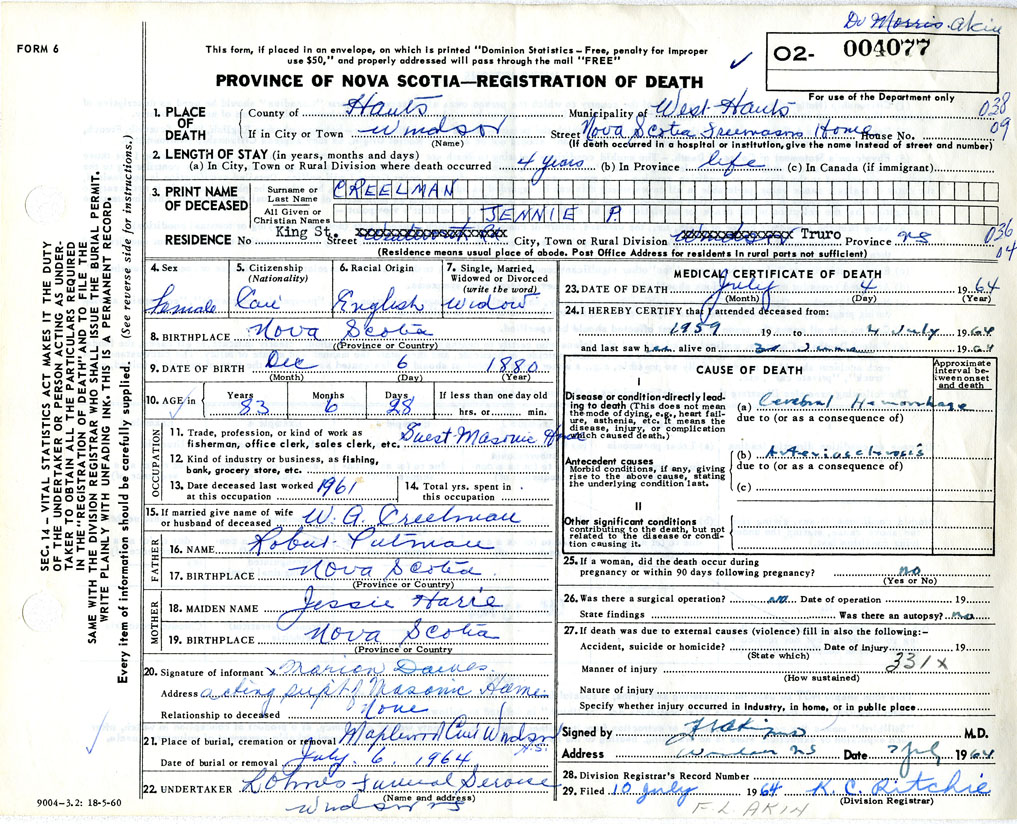 Dr Morris Akin
FORM 6
This form, if placed in an envelope, on which is printed "Dominion Statistics – Free, penalty for improper
use $50," and properly addressed will pass through the mail "FREE"
O2- 004077
PROVINCE OF NOVA SCOTIA—REGISTRATION OF DEATH
For use of the Department only
038
09
1. PLACE OF DEATH
County of Hants Municipality of West Hants
If in City or Town Windsor Street Nova Scotia Freemasons Home House No.
(Name) (If death occurred in a hospital or institution, give the name instead of street and number)
2. LENGTH OF STAY (in years, months and days)
(a) In City, Town or Rural Division where death occurred 4 years (b) In Province life (c) In Canada (if immigrant)
3. PRINT NAME OF DECEASED
Surname or Last Name CREELMAN
All Given or Christian Names JENNIE P.
036
04
RESIDENCE No King St. Street City, Town or Rural Division Truro Province NS
(Residence means usual place of abode. Post Office Address for residents in rural parts not sufficient)
4. Sex Female
5. Citizenship (Nationality) Can
6. Racial Origin English
7. Single, Married, Widowed or Divorced (write the word) Widow
8. BIRTHPLACE Nova Scotia
(Province or Country)
9. DATE OF BIRTH Dec 6 1880
(Month) (Day) (Year)
10. AGE in Years 83 Months 6 Days 28 If less than one day old hrs. or min.
OCCUPATION
11. Trade, profession, or kind of work as fisherman, office clerk, sales clerk, etc. Guest Masonic Home
12. Kind of industry or business, as fishing, bank, grocery store, etc.
13. Date deceased last worked at this occupation 1961
14. Total yrs. spent in this occupation
15. If married give name of wife or husband of deceased W. A. Creelman
FATHER
16. NAME Robert Putman
17. BIRTHPLACE Nova Scotia
(Province or Country)
MOTHER
18. MAIDEN NAME Jessie Harie
19. BIRTHPLACE Nova Scotia
(Province or Country)
20. Signature of informant x Marion Dawes
Address acting supt of Masonic Home
Relationship to deceased None
21. Place of burial, cremation or removal Maplewood Windsor N.S.
Date of burial or removal July 6, 1964
22. UNDERTAKER Funeral Service
(Name and address)
Windsor NS
MEDICAL CERTIFICATE OF DEATH
23. DATE OF DEATH July 4 1964
(Month) (Day) (Year)
24. I HEREBY CERTIFY that I attended deceased from:
1959 19 to 4 July 1964
and last saw her alive on 1964
CAUSE OF DEATH
Approximate interval between onset and death
I
Disease or condition directly leading to death (This does not mean the mode of dying, e.g., heart failure, asthenia, etc. It means the disease, injury, or complication which caused death.)
(a) Cerebral Hemorrhage
due to (or as a consequence of)
Antecedent causes
Morbid conditions, if any, giving rise to the above cause, stating the underlying condition last.
(b) Arteriosclerosis
due to (or as a consequence of)
(c)
II
Other significant conditions
contributing to the death, but not related to the disease or condition causing it.
25. If a woman, did the death occur during pregnancy or within 90 days following pregnancy? no
(Yes or No)
26. Was there a surgical operation? no Date of operation 19
State findings Was there an autopsy? no
27. If death was due to external causes (violence) fill in also the following:–
Accident, suicide or homicide? Date of injury 19
(State which)
331x
Manner of injury
(How sustained)
Nature of injury
Specify whether injury occurred in industry, in home, or in public place
Signed by M.D.
Address Windsor NS Date 7 July 1964
28. Division Registrar's Record Number
29. Filed 10 July 1964 K. C. Ritchie
(Division Registrar)
F. L. AKIN
9004–3.2: 18-5-60
SEC. 14 – VITAL STATISTICS ACT MAKES IT THE DUTY
OF THE UNDERTAKER OR PERSON ACTING AS UNDER-
TAKER TO OBTAIN ALL THE PARTICULARS REQUIRED
IN THE "REGISTRATION OF DEATH" AND TO FILE THE
SAME WITH THE DIVISION REGISTRAR WHO SHALL ISSUE THE BURIAL PERMIT.
WRITE PLAINLY WITH UNFADING INK. THIS IS A PERMANENT RECORD.
Every item of information should be carefully supplied. (See reverse side for instructions.)